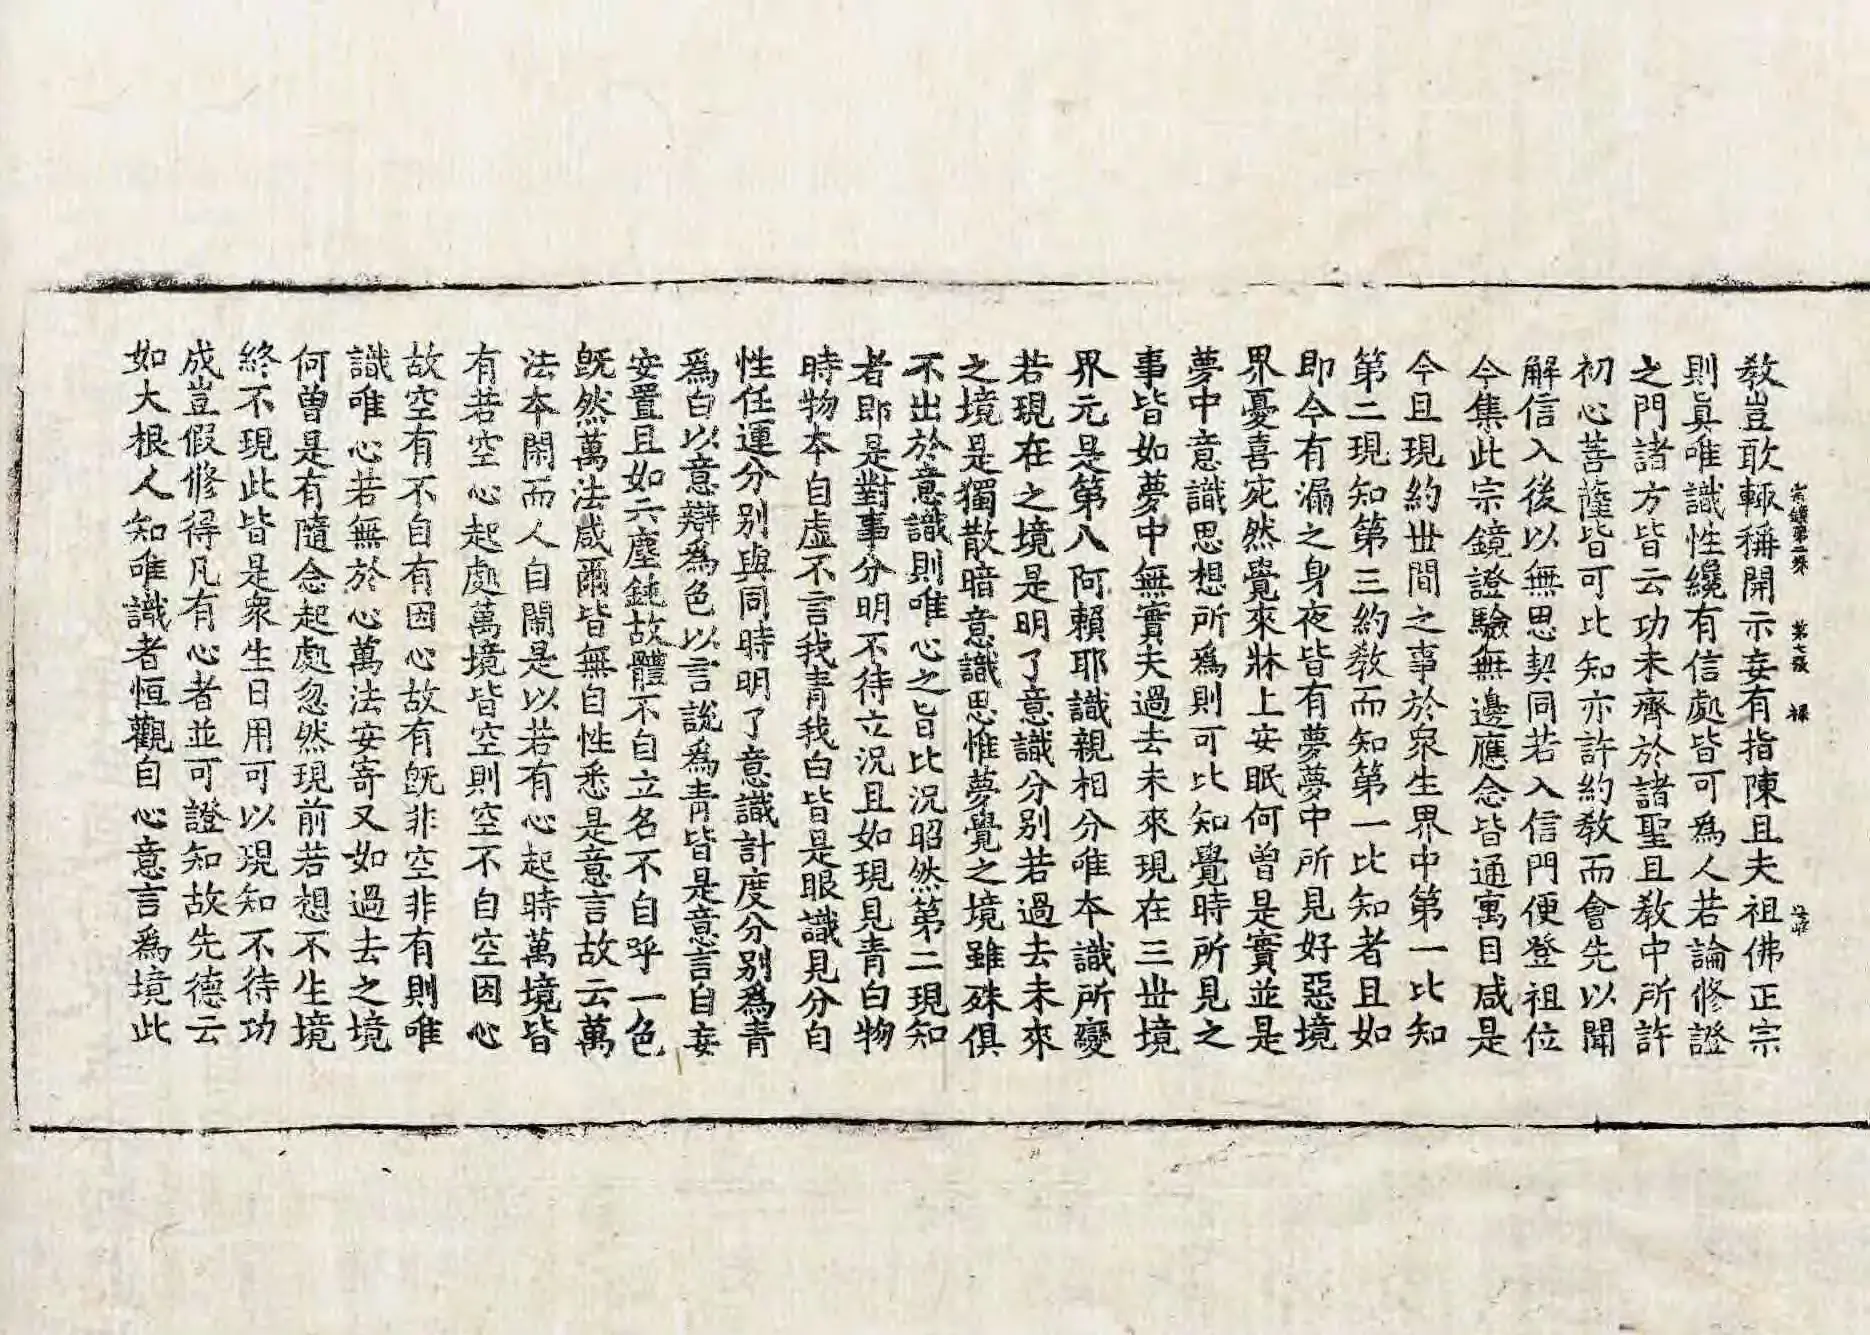 教豈敢輒稱開示妄有指陳且夫祖佛正宗
則眞唯識性纔有信處皆可爲人若論修證
之門諸方皆云功未齊於諸聖且教中所許
初心菩薩皆可比知亦許約教而會先以聞
解信入後以無思契同若入信門便登祖位
今集此宗鏡證驗無邊應念皆通寓目咸是
今且現約世間之事於衆生界中第一比知
第二現知第三約教而知第一比知者且如
即今有漏之身夜皆有夢夢中所見好惡境
界憂喜宛然覺來牀上安眠何曾是實並是
夢中意識思想所爲則可比知覺時所見之
事皆如夢中無實夫過去未來現在三世境
界元是第八阿賴耶識親相分唯本識所變
若現在之境是明了意識分別若過去未來
之境是獨散暗意識思惟夢覺之境雖殊俱
不出於意識則唯心之旨比況昭然第二現知
者即是對事分明不待立況且如現見青白物
時物本自虛不言我青我白皆是眼識見分自
性任運分別與同時明了意識計度分別爲青
爲白以意辯爲色以言說爲青皆是意言自妄
安置且如六塵鈍故體不自立名不自呼一色
既然萬法咸爾皆無自性悉是意言故云萬
法本閑而人自鬧是以若有心起時萬境皆
有若空心起處萬境皆空則空不自空因心
故空有不自有因心故有既非空非有則唯
識唯心若無於心萬法安寄又如過去之境
何曾是有隨念起處忽然現前若想不生境
終不現此皆是衆生日用可以現知不待功
成豈假修得凡有心者並可證知故先德云
如大根人知唯識者恒觀自心意言爲境此
第七張